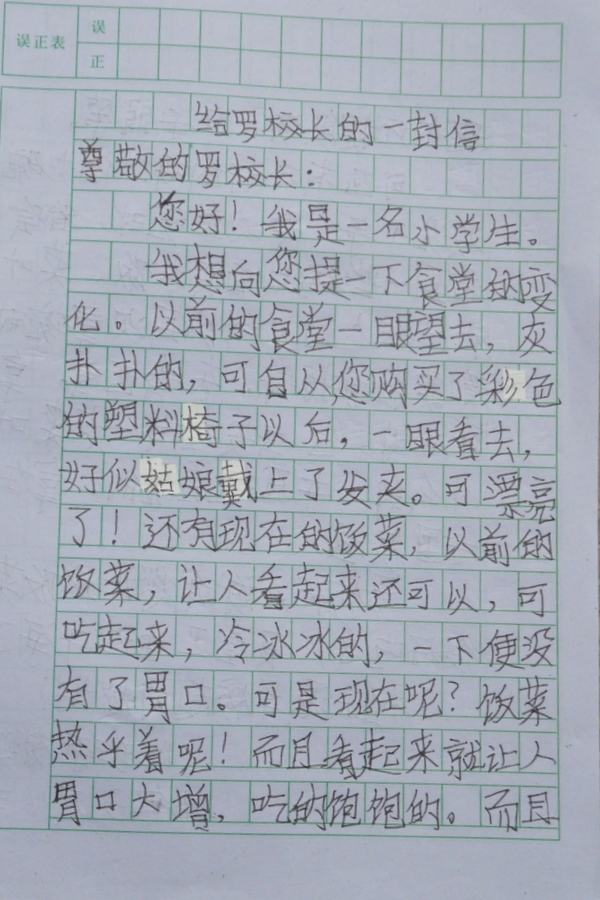 误正表
误
正
给罗校长的一封信
尊敬的罗校长：
您好！我是一名小学生。
我想向您提一下食堂的变
化。以前的食堂一眼望去，灰
扑扑的，可自从您购买了彩色
的塑料椅子以后，一眼看去，
好似姑娘戴上了发夹。可漂亮
了！还有现在的饭菜，以前的
饭菜，让人看起来还可以，可
吃起来，冷冰冰的，一下便没
有了胃口。可是现在呢？饭菜
热乎着呢！而且看起来就让人
胃口大增，吃的饱饱的。而且